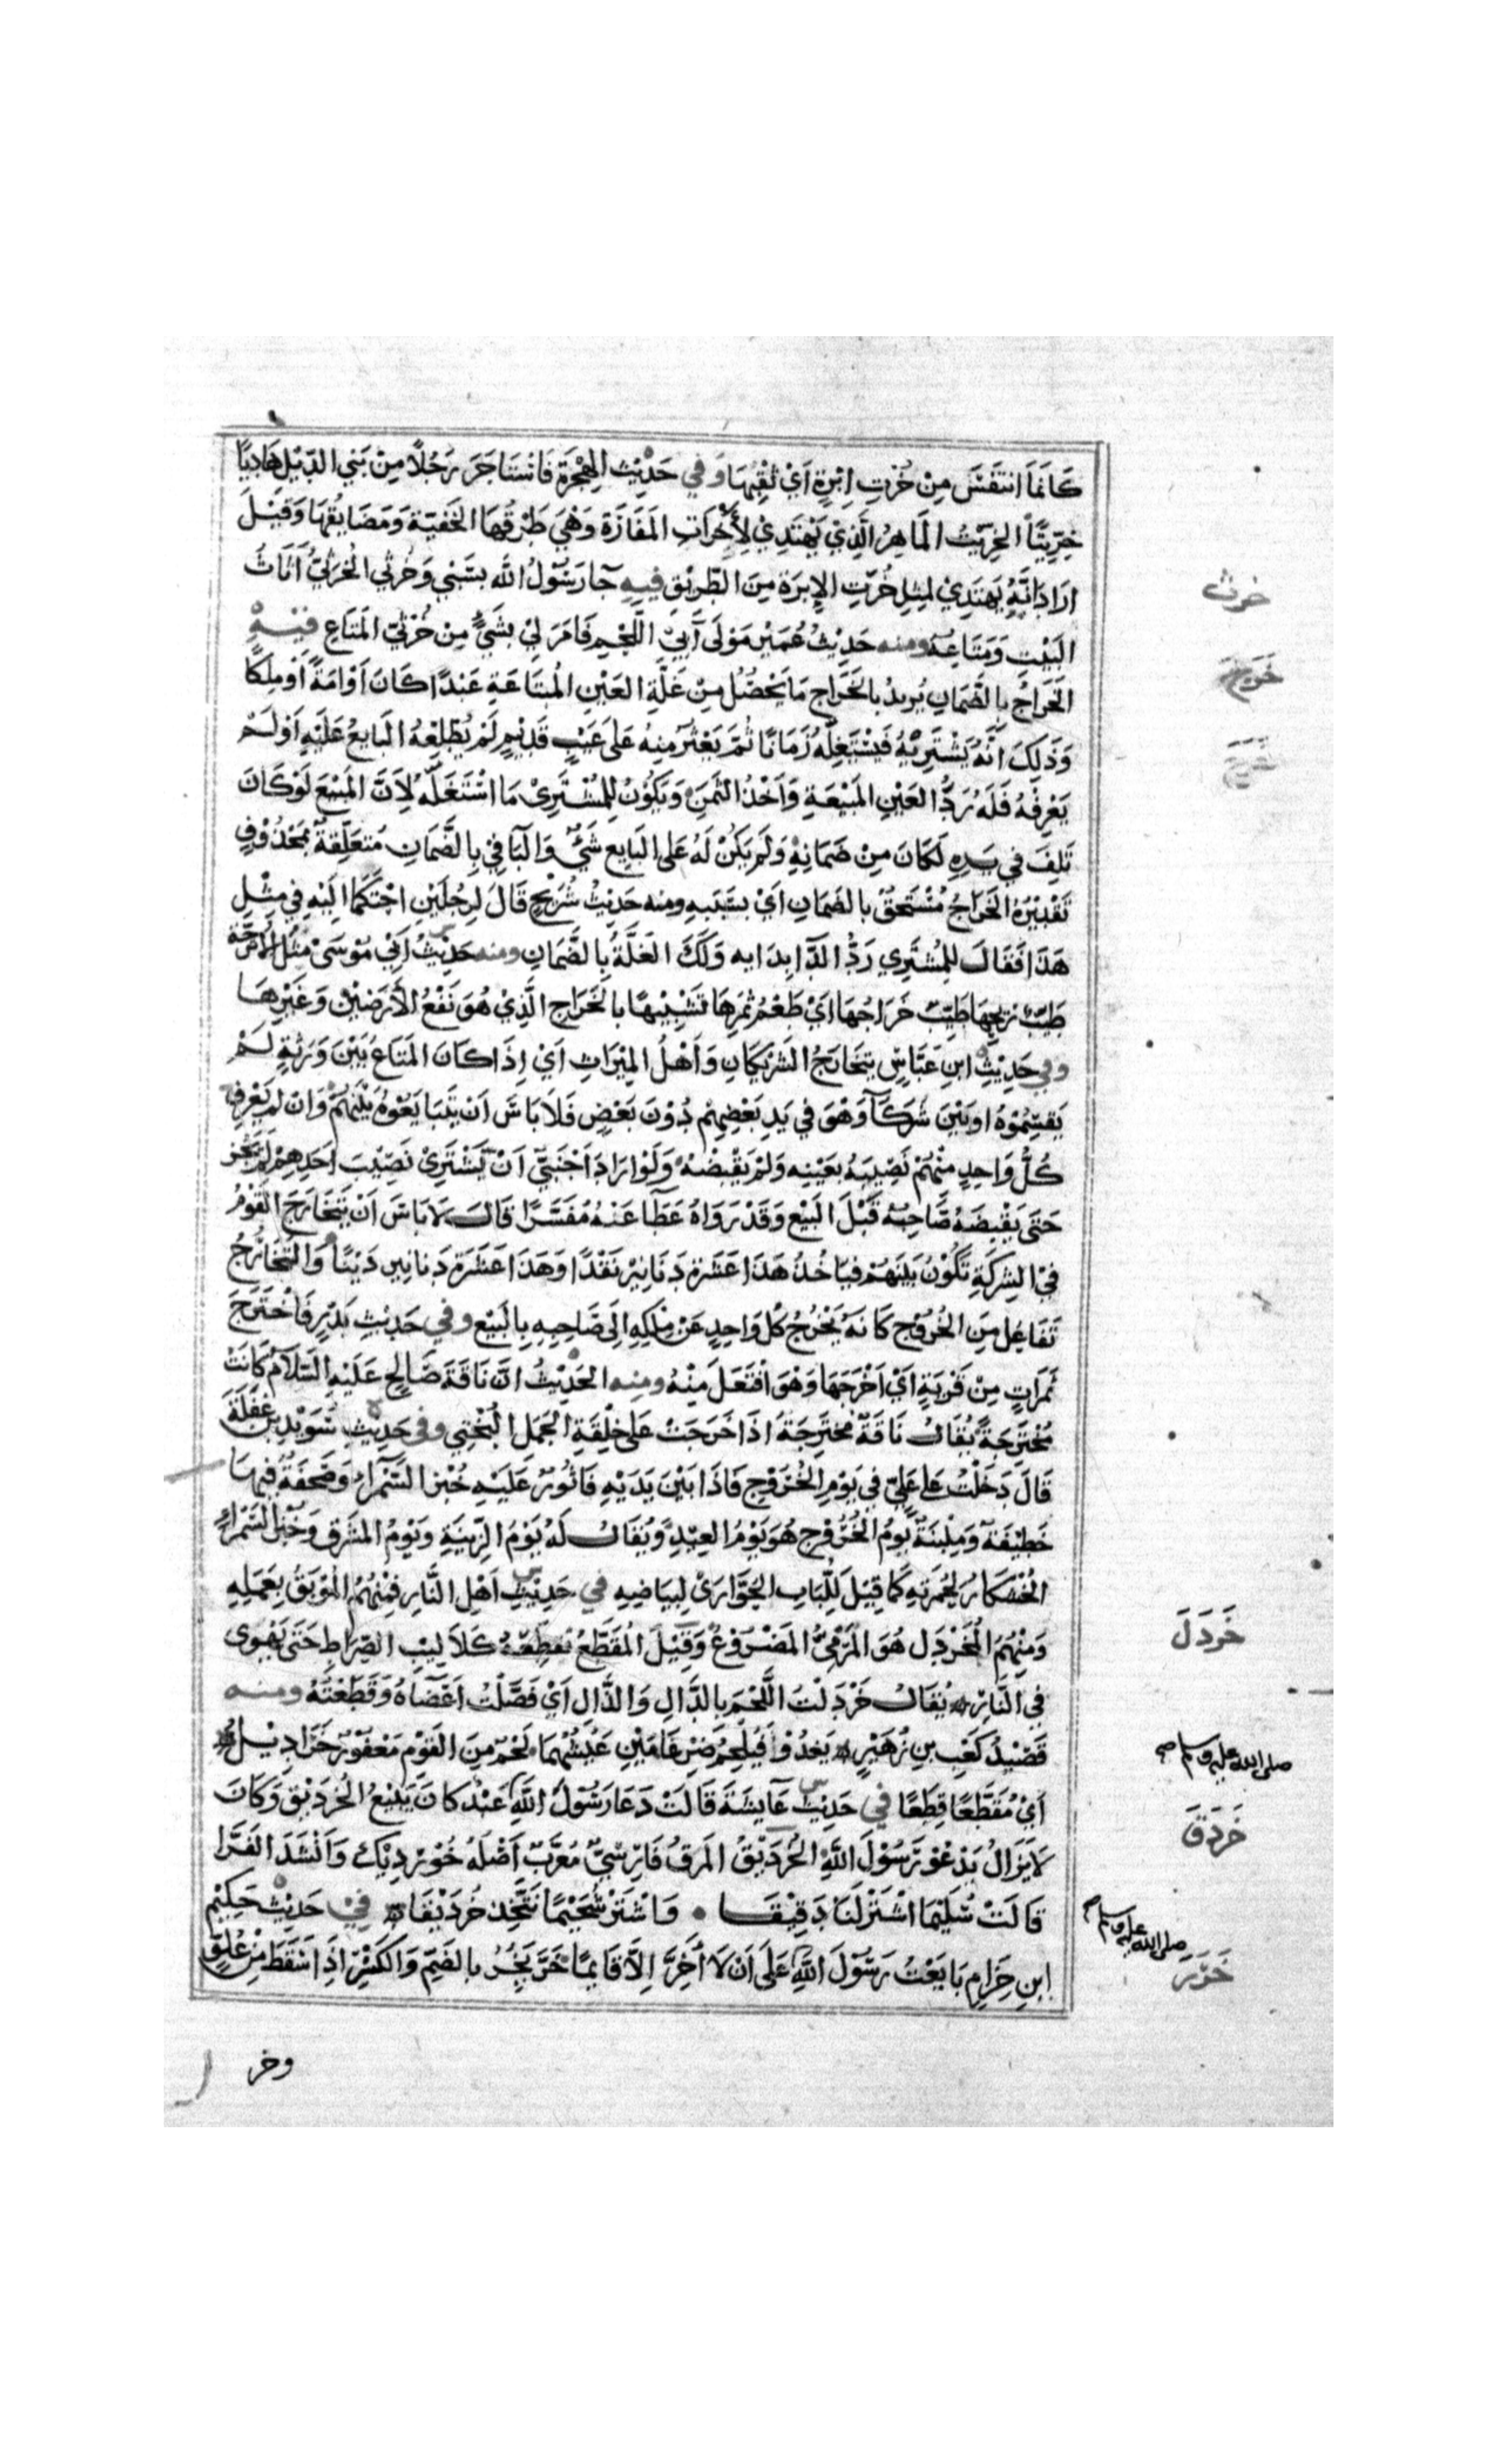 كَاَنَّمَا اَتَنَفَّسُ مِنْ خُرْتِ اِبْرَةٍ اَيْ ثُقْبِهَا وَفي حَدِيْثِ الهِجْرَةِ فَاسْتَاجَرَ رَجُلاً مِنْ بَنِي الدِّيْلِ هَادِيًا
خِرِّيْتًا الخِرِّيْتُ المَاهِرُ الَّذِيْ يَهْتَدِيْ لِاَخْرَاتِ المَفَازَةِ وَهِيَ طُرُقُهَا الخَفِيَّة وَمَضَايِقُهَا وَقِيْلَ
اَرَادَ اَنَّهُ يَهْتَدِيْ لمِثْلِ خُرْتِ الاِبْرَةِ مِنَ الطَّرِيْقِ فيهِ جَا رَسُوْلُ الله بسَبْيٍ وَخُرْثِي الخُرثِيُّ اَثَاثُ
البَيْتِ وَمَتَاعُه ومنه حَدِيْثُ عُمَيْرٍ مَوْلَى آبِي اللَّحْمِ فَاَمَرَ لِيْ بشَيْءٍ مِنْ خُرْثِيّ المَتَاعِ فيْهِ
الخَرَاجُ بالضَّمَانِ يُرِيدُ بالخَرَاجِ مَا يَحْصُلُ مِنْ غَلَّةِ العَيْنِ المُبتَاعَةِ عَبْدًا كَانَ اَوْ اَمَةً اَوْ مِلكًا
وَذَلِكَ اَنَّهُ يَشْتَرِيْهُ فَيَسْتَغِلُّهُ زَمَانًا ثُمَّ يَعْثُرُ مِنهُ عَلَى عَيْبٍ قَدِيْمٍ لَمْ يُطْلِعْهُ البَايِعُ عَلَيْهِ اَوْ لَمْ
يَعْرِفْهُ فَلَهُ رَدُّ العَيْنِ المَبِيْعَةِ وَاَخْذُ الثَّمَنِ وَيَكُوْنُ لِلْمُشْتَرِيْ مَا اسْتَغَلَّهُ لِاَنَّ المَبِيْعَ لَوْ كَانَ
تَلِفَ في يَدِهِ لَكَانَ مِنْ ضَمَانِهِ وَلَمْ يَكُنْ لَهُ عَلى البَايِع شَيْءٌ وَالبَا في بِالضَّمَانِ مُتعَلِّقةٌ بمَحْذُوْفٍ
تَقْدِيْرُهُ الخَرَاجُ مُسْتَحَقٌّ بالضَمَانِ اَيْ بسَبَبِهِ ومنه حَدِيْثُ شُرَيْحٍ قَالَ لِرَجُلَيْنِ احْتَكَمَا اِلَيْهِ فِي مِثْلِ
هَذَا فَقَالَ للِمُشْتَرِي رُدَّ الدَّا بِدَايه وَلَكَ الغَلَّةُ بالضَّمَانِ ومنه حَدِيْثُ اَبِيْ مُوْسَى مَثَلُ الاُتْرُجَّة
طَيِّبٌ رِيحُهَا طَيِّبٌ خَرَاجُهَا اَيْ طَعْمُ ثَمَرِهَا تَشْبِيْهًا بالخَرَاجِ الَّذِيْ هُوَ نَفْعُ الاَرَضِيْنَ وَغَيْرِهَا
وفي حَدِيْثِ ابنِ عَبَّاسٍ يتَخَارَجُ الشَّرِيْكَانِ وَاَهْلُ المِيْرَاثِ اَيْ اِذَا كَانَ المَتَاعُ بَيْنَ وَرَثَةٍ لَمْ
يَقْتَسِمُوْهُ اوبَيْنَ شُرَكَآ وَهُوَ في يَدِ بَعْضِهِمْ دُوْنَ بَعْضٍ فَلَا بَاسَ اَنْ يَتَبَايَعُوْهُ بَيْنَهُمْ وَاِنْ لم يَعْرِفْ
كُلُّ وَاحِدٍ مِنْهُمْ نَصِيْبَهُ بعَيْنِه وَلَمْ يَقْبِضْهُ وَلَوْ اَرَادَ اَجْنَبِيٌّ اَنْ يَشْتَرِيْ نَصِيْبَ اَحَدِهِمْ لَمْ يَجُز
حَتَّى يَقْبِضَهُ صَاحِبُهُ قَبْلَ البَيْعِ وَقَدْ رَوَاهُ عَطَآ عَنْهُ مُفَسَّرًا قَالَ لَا بَاسَ اَنْ يَتَخَارَجَ القَوْمُ
فِيْ الشِرْكَةِ تَكُوْنُ بَيْنَهُمْ فيَاخُذُ هَذَا عَشَرَة دَنَانِيْرَ نَقْدًا وَهَذَا عَشَرَة دَنَانِيرَ دَيْنًا وَالتَّخَارُجُ
تَفَاعُل مِنَ الخُرُوْجِ كَاَنَهُ يَخْرُجُ كُلّ وَاحِدٍ عَنْ مِلْكِهِ اِلَى صَاحِبِهِ بالبَيْعِ وفي حَدِيْثِ بَدْرٍ فَاخْتَرَجَ
تَمَرَاتٍ مِنْ قَرْنِهِ اَيْ اَخْرَجَهَا وَهُوَ افْتَعَلَ مِنْهُ ومنه الحَدِيْثُ اِنَّ نَاقَةَ صَالِحٍ عَلَيْهِ السَّلَامُ كَانَتْ
مُخْتَرَجَةً يُقَالُ نَاقَةٌ مُخْتَرَجَةٌ اذَا خَرَجَتْ عَلى خِلْقَةِ الجَمَلِ البُخْتِي وفي حَدِيْثِ سُوَيْدِ بْنِ غَفَلَةَ
قَالَ دَخَلْتُ عَلى عَلِيّ في يَوْمِ الخُرُوْجِ فَاذَا بَيْنَ يَدَيْهِ فَاثُوْرٌ عَلَيْهِ خُبْز السَّمْرَاءِ وَصَحْفَةٌ فيْهَا
خَطِيْفَة وَمِلْبَنَةٌ يَومُ الخُرُوْجِ هُوَ يَوْمُ العِيْدِ وَيُقَالُ لَهُ يَوْمُ الزِّيْنَةِ وَيَوْمُ المشْرَقِ وَخُبْزُ السَّمْرَاءِ
الخُشكَارُ لِحُمْرَتِهِ كَمَا قِيْلَ لِلُّبَابِ الحُوَّارَى لِبَيَاضِهِ في حَدِيْثِ اَهْلِ النَّارِ فَمِنْهُمُ المُوْبَقُ بعَمَلِهِ
وَمِنْهُمُ المُخَرْدَل هُوَ المَرْمِيُّ المَصْرُوْعُ وَقِيْلَ المُقَطَّعُ تُقَطِّعُهُ كَلَالِيْبُ الصِّرَاطِ حَتَى يَهْوِى
في النَّارِ يُقَالُ خَرْدَلْتُ اللَّحْمَ بالدَّالِ وَالذَّالِ اَيْ فَصَّلْتُ اَعْضَاهُ وَقَطَّعْتُهُ ومنه
قَصِيْدُ كَعْبِ بنِ زُهَيْرٍ يَغْدُوْ فَيُلْحِمُ ضِرْغَامَيْنِ عَيْشُهُمَا لَحْمٌ مِنَ القَوْمِ مَعْفُوْرٌ خَرَادِيْلُ
اَيْ مُقَطَّعًا قِطَعًا في حَدِيْثِ عَايشَةَ قَالَتْ دَعَا رَسُوْلَ اللَّهِ عَبْدٌ كانَ يَبِيْعُ الخُرْدِيْقَ وَكَانَ
لَا يَزَالُ يَدْعُوْ رَسُوْلَ اللَّهِ الخُرْدِيْقُ المَرَقُ فَارِسِيٌّ مُعَرَّبٌ اَصْلُهُ خُوْرْدِيْك وَاَنْشَدَ الفَرَّا
قَالَتْ سُلَيْمَا اشْتَرْ لَنَا دَقِيْقَا • وَاشْتَرْ شُحَيْمًا نتَّخِذ خُرْدِيْقَا في حَدِيْثِ حَكِيْمِ
ابنِ حِزَامٍ بَايَعْتُ رَسُوْلَ اللَّهِ عَلَى اَنْ لَا اَخِرَّ اِلَّا قَايمًا خَرَّ يَخُرُّ بالضَّمّ وَالكَسْرِ اذَا سَقَطَ مِنْ عُلوٍّ
وخر
خرث
خَرَج
خَردَل
صلى الله عليه وسلم صح
خَردَق
صلى الله عليه وسلم
خَرَر